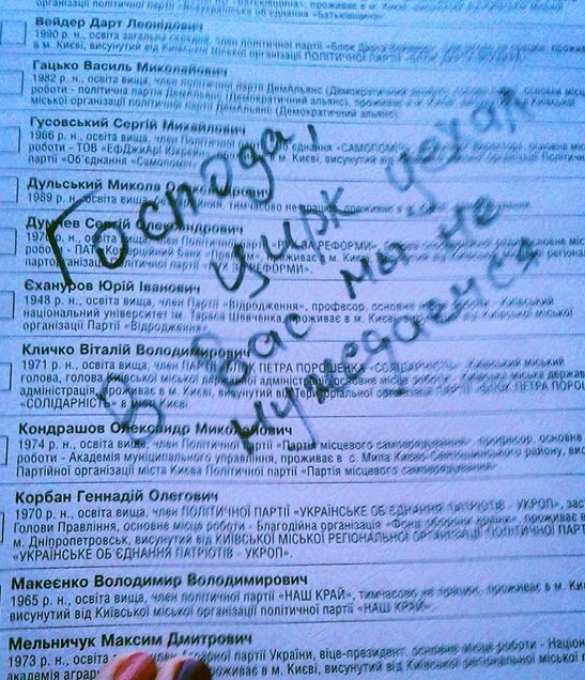 Вейдер Дарт Леонідович
1990 р. н., освіта загальна середня, член політичної партії «Блок Дарта
в м. Києві, висунутий від Київської міської організації ПОЛІТИЧНОЇ ПАРТІЇ «БЛОК
Гацько Василь Миколайович
1982 р. н., освіта вища, член політичної партії ДемАльянс (Демократичний альянс),
роботи - політична партія ДемАльянс (Демократичний альянс), проживає в м. Києві, висунутий від Київської
міської організації політичної партії ДемАльянс (Демократичний альянс)
Гусовський Сергій Михайлович
1966 р. н., освіта вища, член Політичної партії «Об'єднання «САМОПОМІЧ»,
роботи - ТОВ «ЕфДжиАрі Юкрейн», в м. Києві, висунутий від
партії «Об'єднання «Самопоміч»
Дульський Микола
1989 р. н., освіта вища, тимчасово не працює, проживає в
Думчев Сергій Олександрович
197 р. н., освіта вища, член Політичної партії «РУХ ЗА РЕФОРМИ»,
роботи - ПАТ Комерційний Банк проживає в м. Києві, висунутий від
парторганізації ЗА РЕФОРМИ».
Єхануров Юрій Іванович
1948 р. н., освіта вища, член Партії «Відродження», професор, основне місце роботи - Київський
національний університет ім. Тараса Шевченка, проживає в м. Києві, висунутий від Київської міської
організації Партії «Відродження».
Кличко Віталій Володимирович
1971 р. н., освіта вища, член ПАРТІЇ «БЛОК ПЕТРА ПОРОШЕНКА «СОЛІДАРНІСТЬ», Київський міський
голова, голова Київської міської державної адміністрації, основне місце роботи - Київська міська державна
адміністрація, проживає в м. Києві, висунутий від Територіальної організації «БЛОК ПЕТРА ПОРО
«СОЛІДАРНІСТЬ» в місті Києві
Кондрашов Олександр Миколайович
1974 р. н., освіта вища, член Політичної партії «Партія місцевого самоврядування», професор, основне
роботи - Академія муніципального управління, проживає в с. Мила Києво-Святошинського району, вис
Партійної організації міста Києва Політичної партії «Партія місцевого самоврядування»
Корбан Геннадій Олегович
1970 р. н., освіта вища, член ПОЛІТИЧНОЇ ПАРТІЇ «УКРАЇНСЬКЕ ОБ'ЄДНАННЯ ПАТРІОТІВ - УКРОП», зас
Голови Правління, основне місце роботи - Благодійна організація «Фонд оборони країни», проживає в
м. Дніпропетровськ, висунутий від КИЇВСЬКОЇ МІСЬКОЇ РЕГІОНАЛЬНОЇ ОРГАНІЗАЦІЇ ПОЛІТИЧНОЇ ПАРТ
«УКРАЇНСЬКЕ ОБ'ЄДНАННЯ ПАТРІОТІВ - УКРОП».
Макеєнко Володимир Володимирович
1965 р. н., освіта вища, член політичної партії «НАШ КРАЙ», тимчасово не працює, проживає в м. Ки
висунутий від Київської міської організації політичної партії «НАШ КРАЙ».
Мельничук Максим Дмитрович
1973 р. н., освіта Аграрної партії України, віце-президент, основне місце роботи - Націон
академія аграр проживає в м. Києві, висунутий від Київської регіональної міської
Господа,
цирк уехал
В вас мы не
нуждаемся